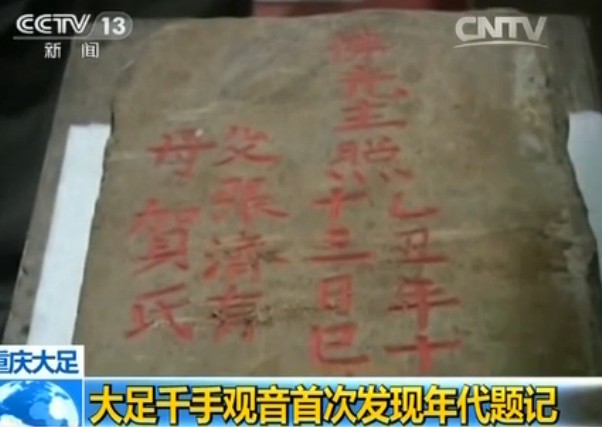 CCTV 13
新闻
CNTV
祥光主照
乙丑年十
十三日巳
父張濟
母賀氏
重庆大足
大足千手观音首次发现年代题记